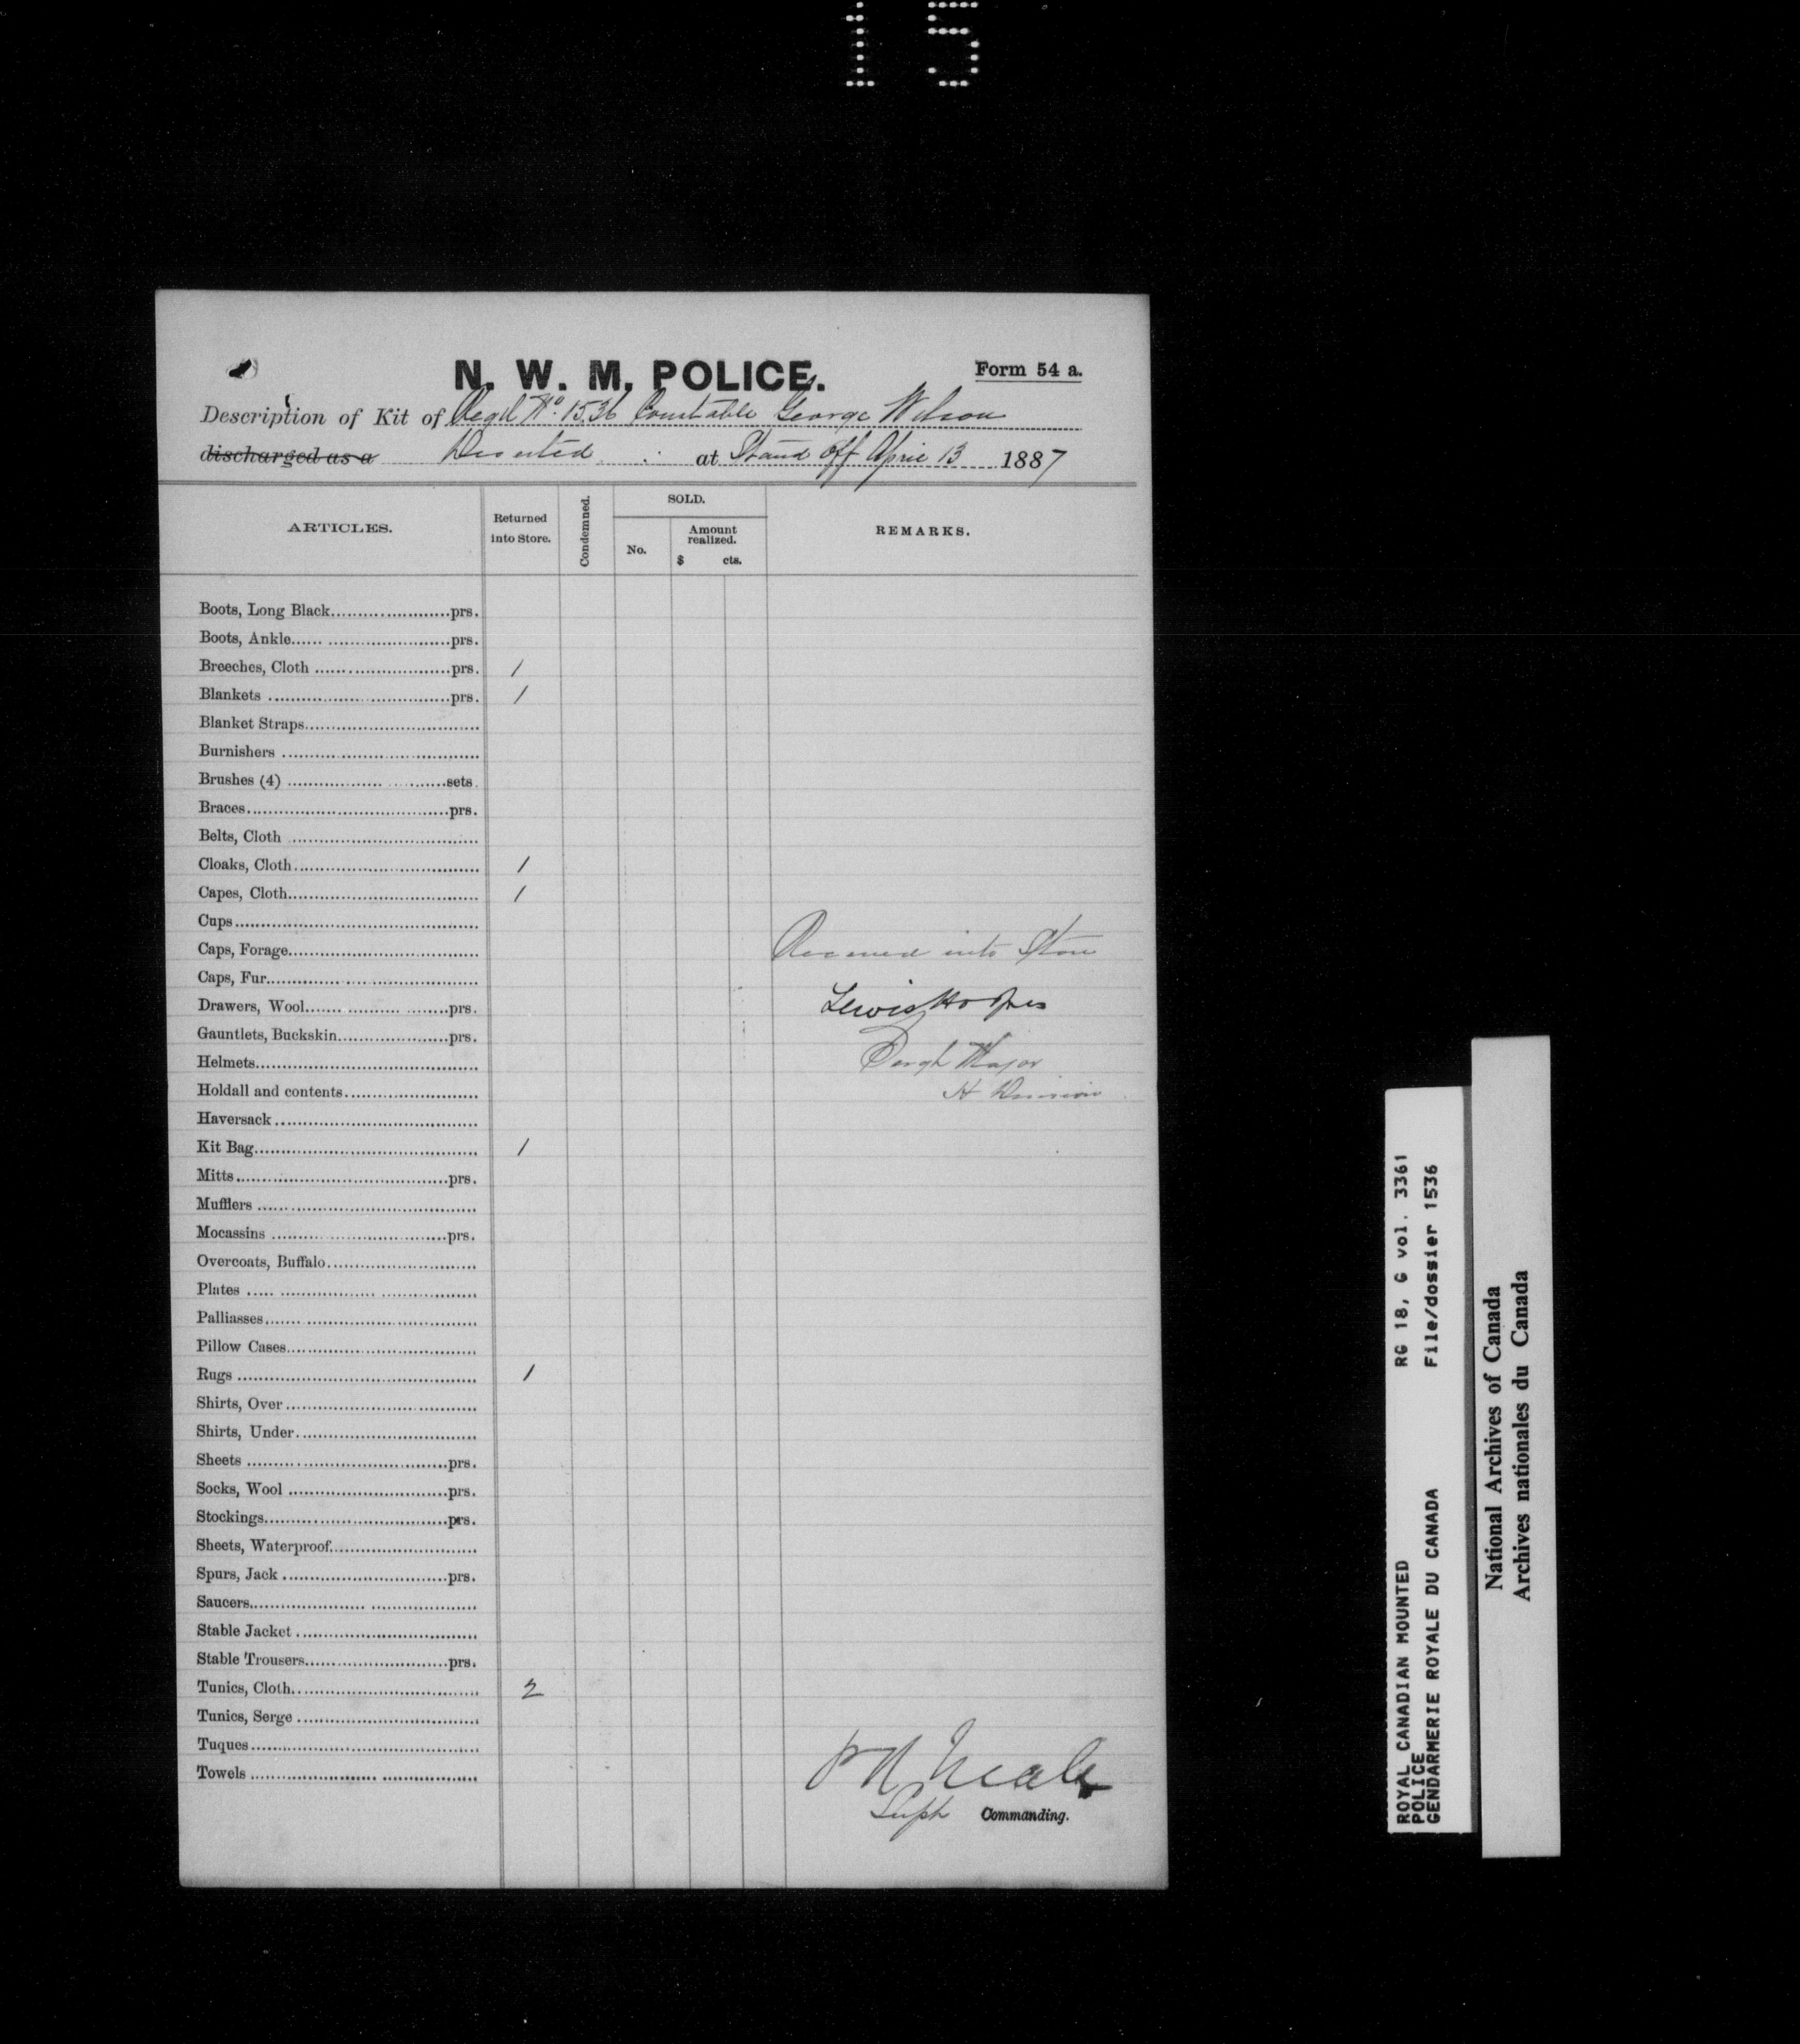 15
N. W. M. POLICE.
Form 54 a.
Description of Kit of Regtl No. 1536 Constable George Wilson
discharged as a Deserted at Stand Off April 13 1887
ARTICLES.
Returned into Store.
Condemned.
SOLD.
No.
Amount realized.
$ cts.
REMARKS.
Boots, Long Black prs.
Boots, Ankle prs.
Breeches, Cloth prs. 1
Blankets prs. 1
Blanket Straps
Burnishers
Brushes (4) sets
Braces prs.
Belts, Cloth
Cloaks, Cloth 1
Capes, Cloth 1
Cups
Caps, Forage
Received into Store
Caps, Fur
Drawers, Wool prs.
Lewis
Gauntlets, Buckskin prs.
Helmets
Sergt Major
Holdall and contents
H Division
Haversack
Kit Bag 1
Mitts prs.
Mufflers
Mocassins prs.
Overcoats, Buffalo
Plates
Palliasses
Pillow Cases
Rugs 1
Shirts, Over
Shirts, Under
Sheets prs.
Socks, Wool prs.
Stockings prs.
Sheets, Waterproof
Spurs, Jack prs.
Saucers
Stable Jacket
Stable Trousers prs.
Tunics, Cloth 2
Tunics, Serge
Tuques
Towels
P R Neale
Supt Commanding.
ROYAL CANADIAN MOUNTED
POLICE
GENDARMERIE ROYALE DU CANADA
RG 18, G vol. 3361
File/dossier 1536
National Archives of Canada
Archives nationales du Canada